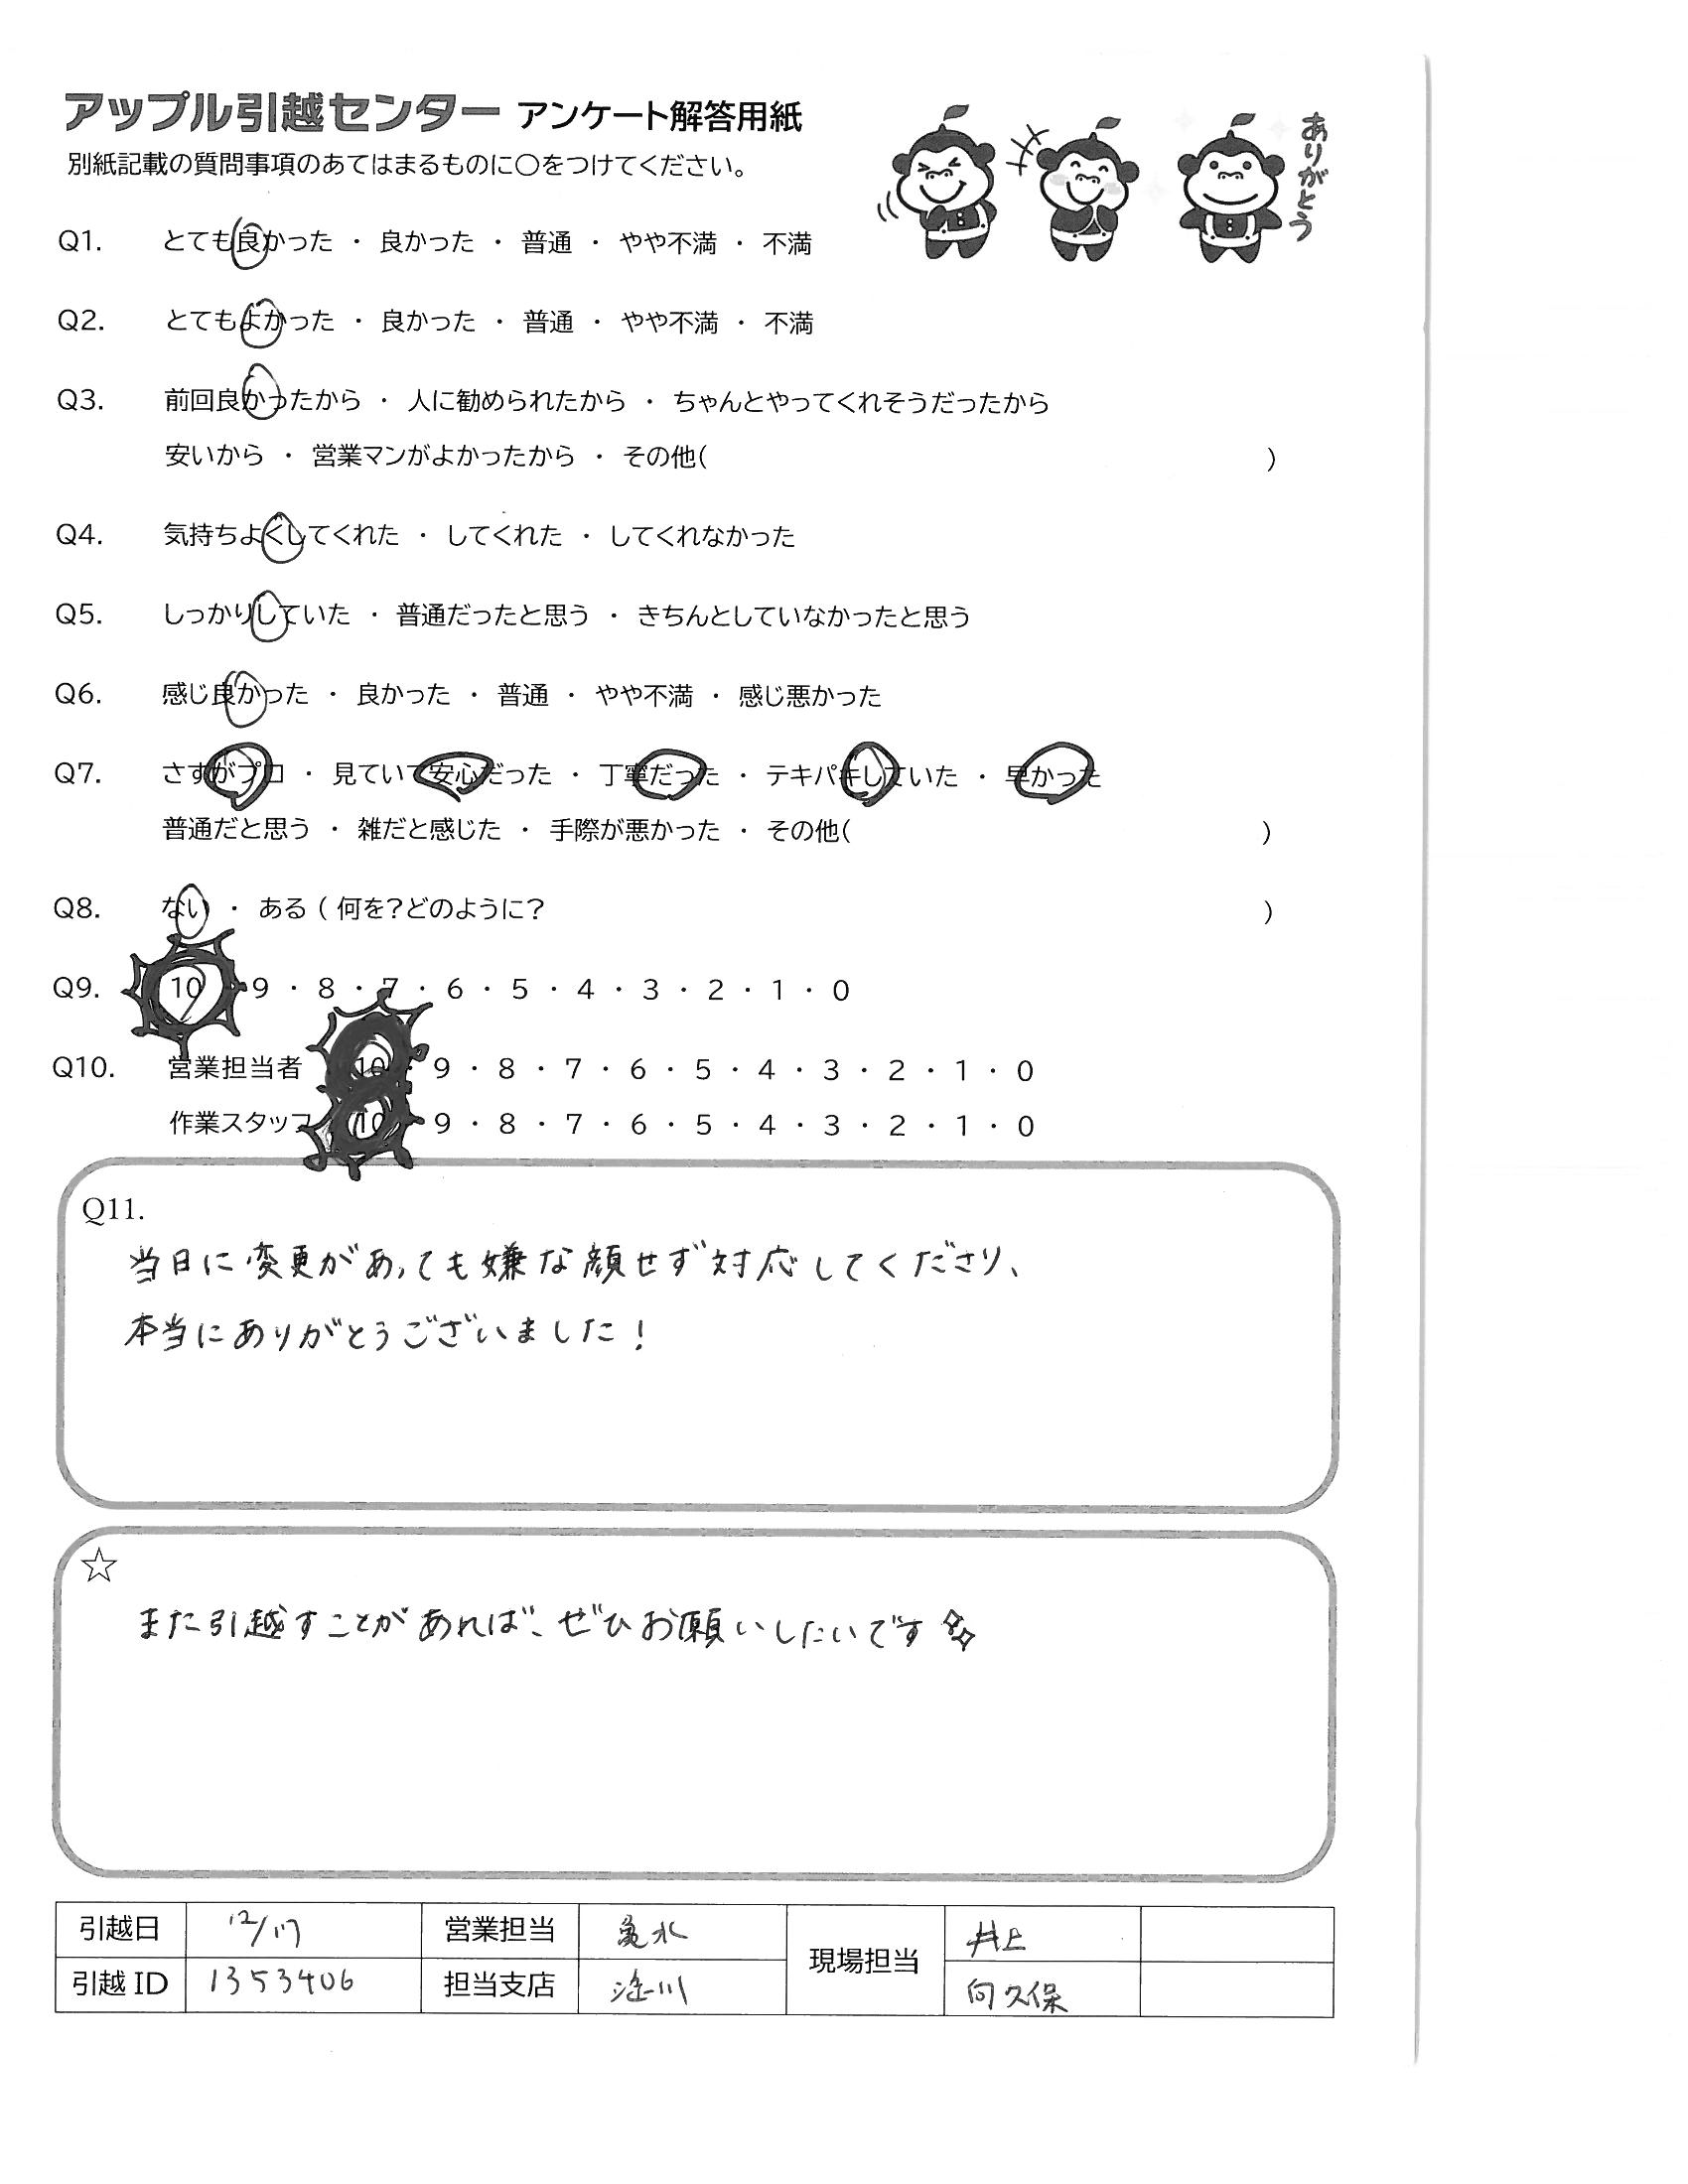 アップル引越センター アンケート解答用紙
別紙記載の質問事項のあてはまるものに〇をつけてください。
ありがとう
Q1. とても良かった ・ 良かった ・ 普通 ・ やや不満 ・ 不満
Q2. とてもよかった ・ 良かった ・ 普通 ・ やや不満 ・ 不満
Q3. 前回良かったから ・ 人に勧められたから ・ ちゃんとやってくれそうだったから
安いから ・ 営業マンがよかったから ・ その他( )
Q4. 気持ちよくしてくれた ・ してくれた ・ してくれなかった
Q5. しっかりしていた ・ 普通だったと思う ・ きちんとしていなかったと思う
Q6. 感じ良かった ・ 良かった ・ 普通 ・ やや不満 ・ 感じ悪かった
Q7. さすがプロ ・ 見ていて安心だった ・ 丁寧だった ・ テキパキしていた ・ 早かった
普通だと思う ・ 雑だと感じた ・ 手際が悪かった ・ その他( )
Q8. ない ・ ある ( 何を?どのように? )
Q9. 10 ・ 9 ・ 8 ・ 7 ・ 6 ・ 5 ・ 4 ・ 3 ・ 2 ・ 1 ・ 0
Q10. 営業担当者 10 ・ 9 ・ 8 ・ 7 ・ 6 ・ 5 ・ 4 ・ 3 ・ 2 ・ 1 ・ 0
作業スタッフ 10 ・ 9 ・ 8 ・ 7 ・ 6 ・ 5 ・ 4 ・ 3 ・ 2 ・ 1 ・ 0
Q11.
当日に変更があっても嫌な顔せず対応してくださり、
本当にありがとうございました!
☆
また引越すことがあれば、ぜひお願いしたいです
引越日 12/17 営業担当 現場担当 井上
引越 ID 1353406 担当支店 淀川 向久保